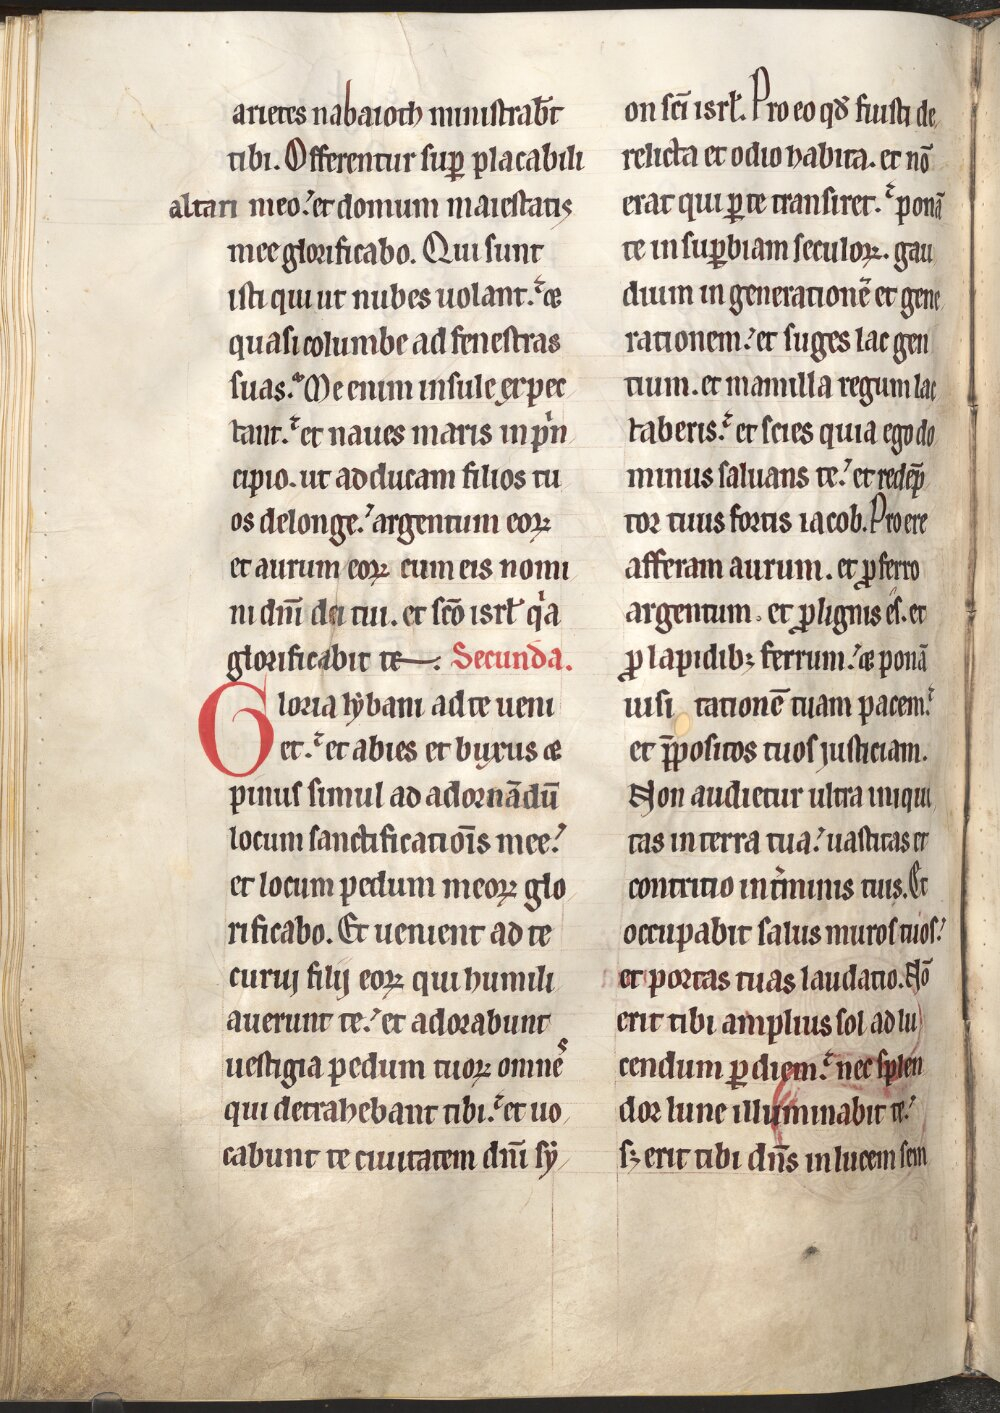 arietes nabaioth ministrab̄t
tibi. Offerentur suꝑ placabili
altari meo.ʼ et domum maiestatis
mee glorificabo. Qui sunt
isti qui ut nubes uolant.ʼ æ
quasi columbe ad fenestras
suas.ʼ Me enim insule expec
tant.ʼ et naues maris in pͥn
cipio. ut adducam filios tu
os delonge.ʼ argentum eoꝝ
et aurum eoꝝ cum eis nomi
ni dn̄i dei tui. et sc̄o isrł qͥa
glorificabit te. Secunda.
Gloria lẏbani ad te ueni
et.ʼ et abies et buxus æ
pinus simul ad adornādū
locum sanctificatiōis mee.ʼ
et locum pedum meoꝝ glo
rificabo. Et uenient ad te
curui filii eoꝝ qui humili
auerunt te.ʼ et adorabunt
uestigia pedum tuoꝝ omneˢ
qui detrahebant tibi.ʼ et uo
cabunt te ciuitatem dn̄i sẏ
on sc̄i isrł. Pro eo qđ fuisti de
relicta et odio habita. et nō
erat qui ꝑ te transiret.ʼ ponā
te in suꝑbiam seculoꝝ. gau
dium in generationē et gene
rationem.ʼ et suges lac gen
tium. et mamilla regum lac
taberis.ʼ et scies quia ego do
minus saluans te.ʼ et redēp
tor tuus fortis iacob. Pro ere
afferam aurum. et ꝓ ferro
argentum. et ꝓ lignis es. et
ꝓ lapidibꝫ ferrum.ʼ æ ponā
uisitationē tuam pacem.ʼ
et p̄positos tuos justiciam.
Non audietur ultra iniqui
tas in terra tua.ʼ uastitas et
contritio in tͥminis tuis. Et
occupabit salus muros tuos.ʼ
et portas tuas laudatio. Nō
erit tibi amplius sol ad lu
cendum ꝑ diem.ʼ nec splen
dor lune illuminabit te.ʼ
sꝫ erit tibi dn̄s in lucem sem